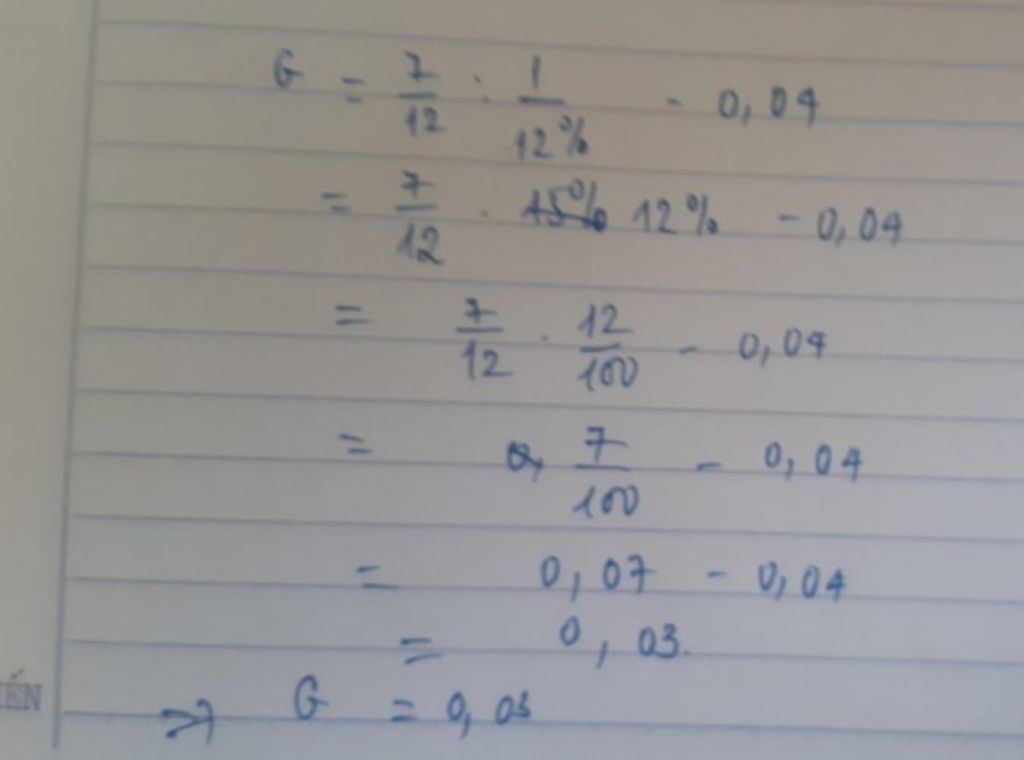 G = 7/12 : 1/12% - 0,04
= 7/12 . 15% 12% - 0,04
= 7/12 . 12/100 - 0,04
= 7/100 - 0,04
= 0,07 - 0,04
= 0,03.
=> G = 0,03
ẾN